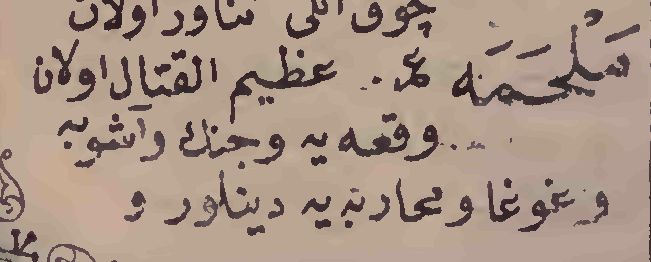 چوق اتلى تناور اولان
مَلْحَمَه ع .. عظيم القتال اولان
وقعه يه وجنك وآشوبه
وغوغا ومحاربه يه دينلور و